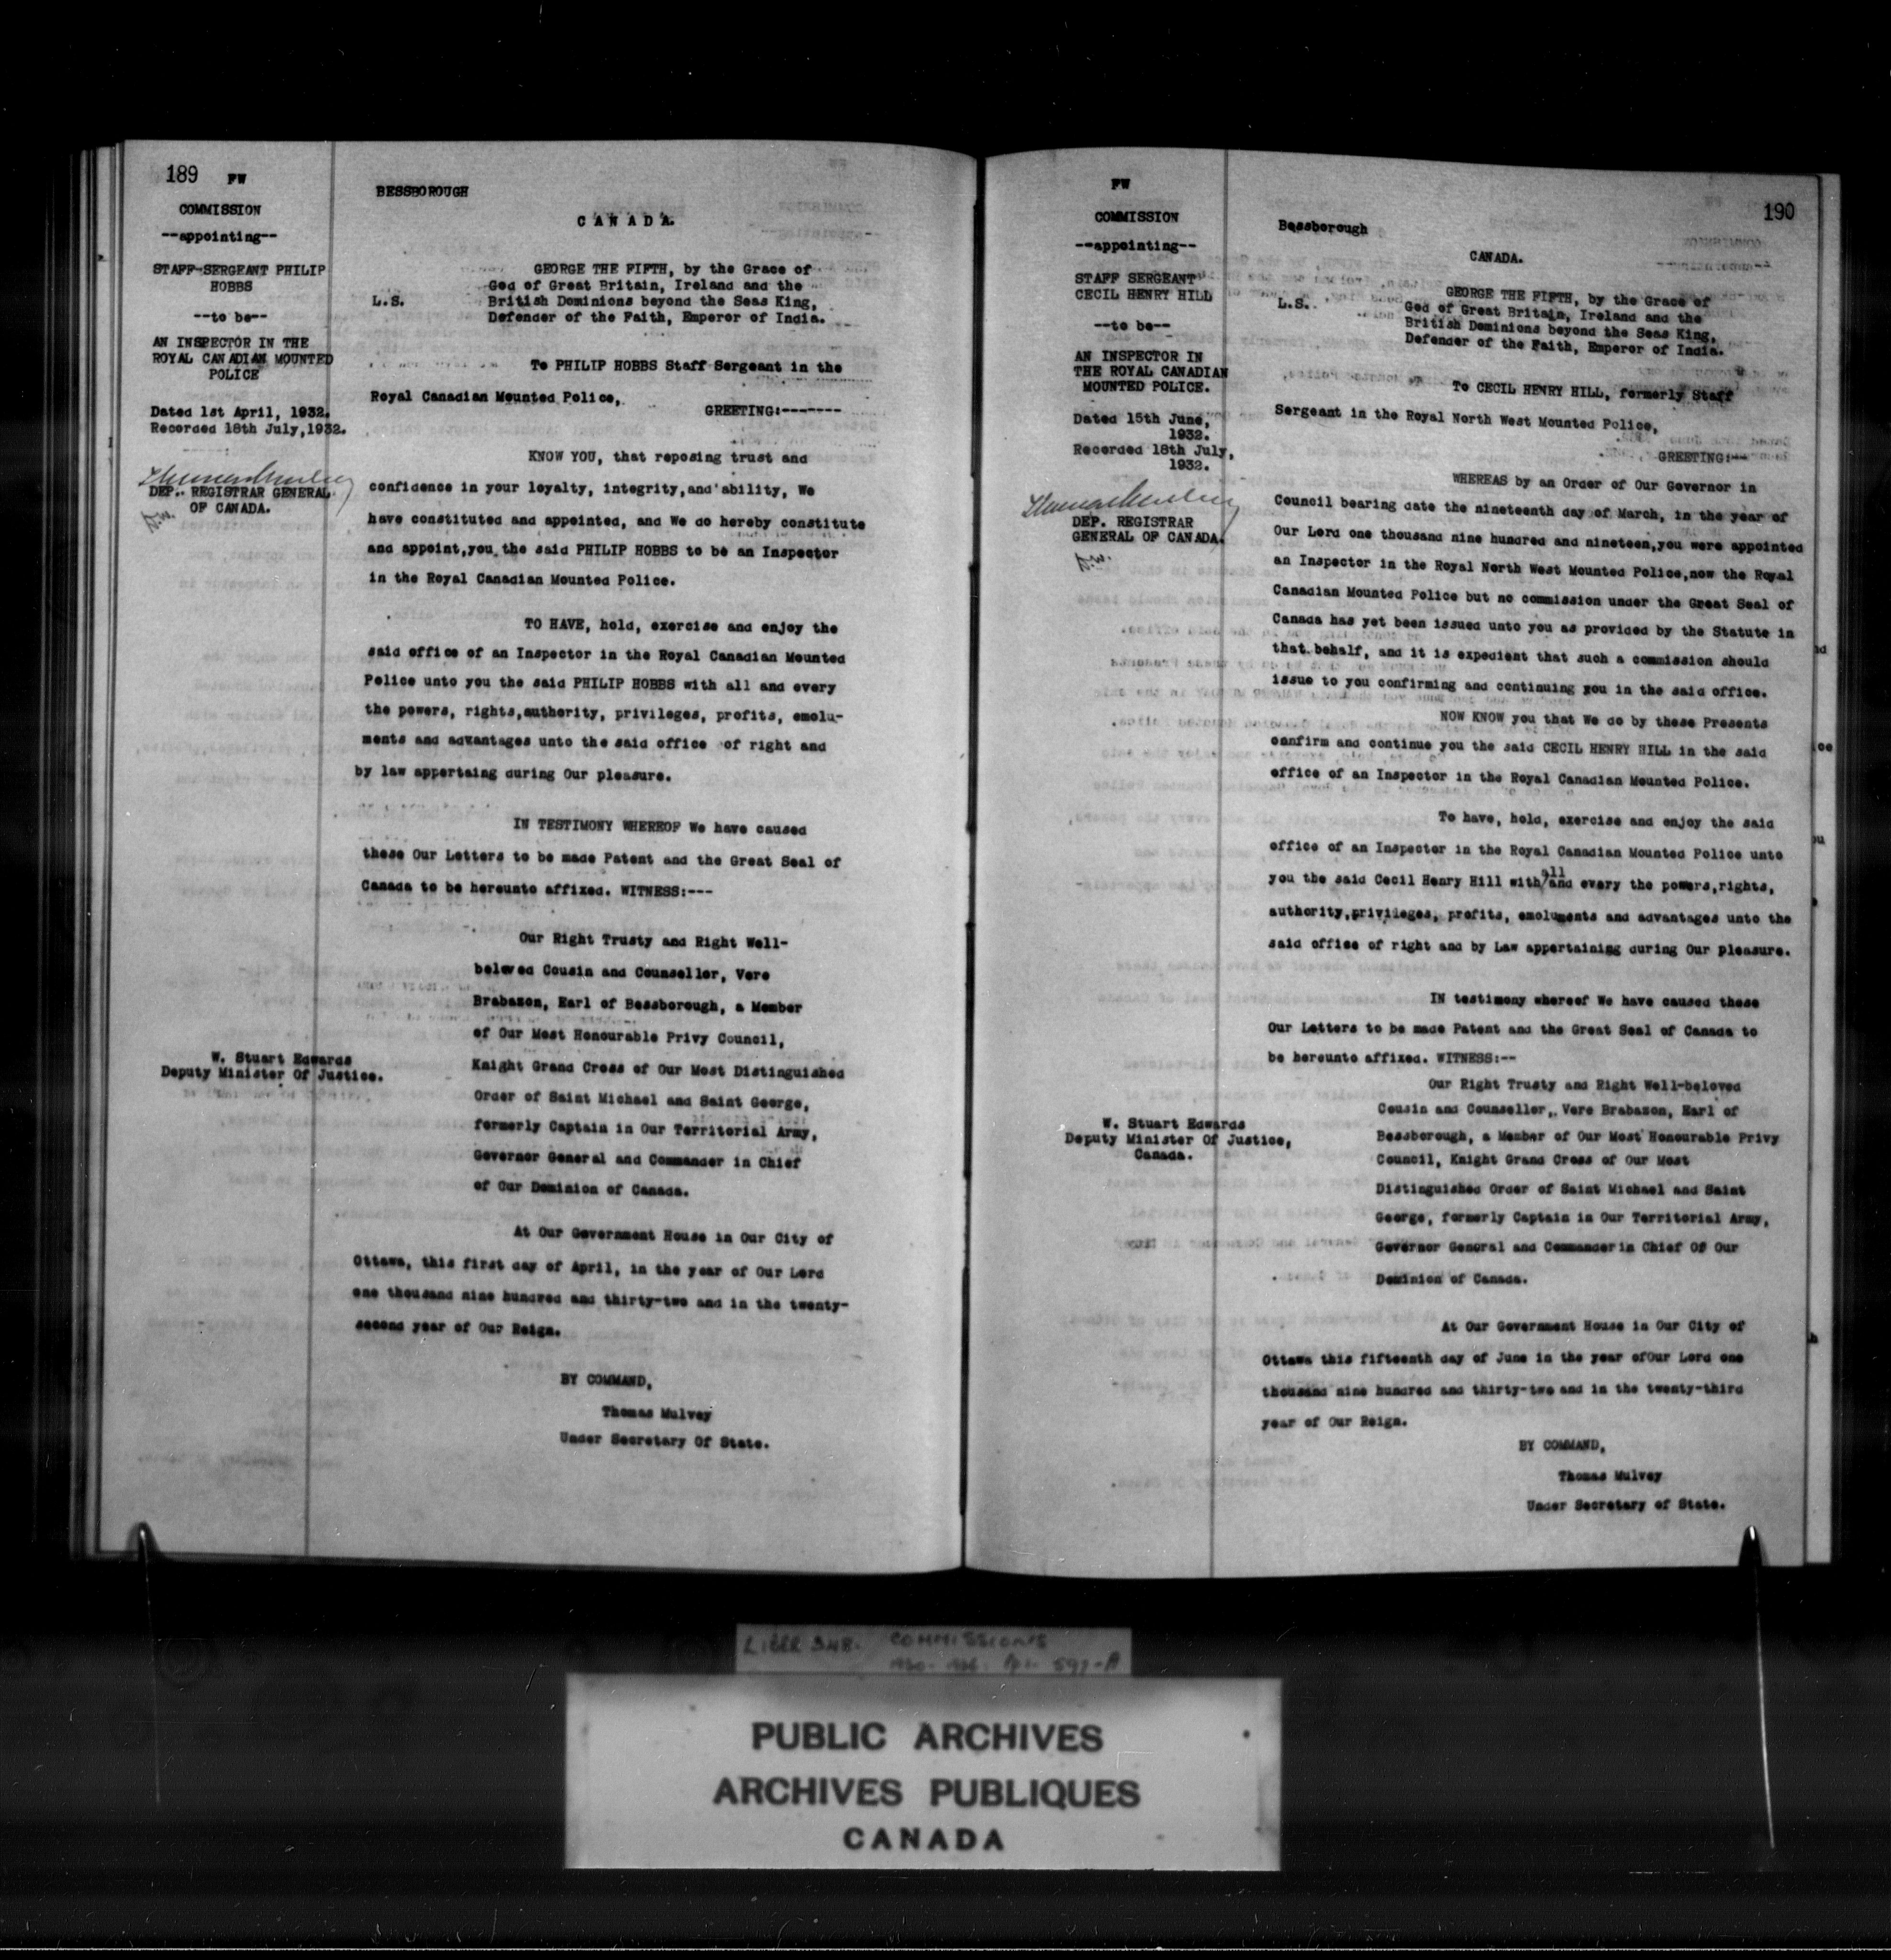 189 FW
COMMISSION
--appointing--
STAFF-SERGEANT PHILIP
HOBBS
--to be--
AN INSPECTOR IN THE
ROYAL CANADIAN MOUNTED
POLICE
Dated 1st April, 1932.
Recorded 18th July,1932.
DEP. REGISTRAR GENERAL
OF CANADA.
W. Stuart Edwards
Deputy Minister Of Justice.
BESSBOROUGH
C A N A D A.
GEORGE THE FIFTH, by the Grace of
God of Great Britain, Ireland and the
L.S. British Dominions beyond the Seas King,
Defender of the Faith, Emperor of India.
To PHILIP HOBBS Staff Sergeant in the
Royal Canadian Mounted Police,
GREETING:-------
KNOW YOU, that reposing trust and
confidence in your loyalty, integrity,and ability, We
have constituted and appointed, and We do hereby constitute
and appoint,you the said PHILIP HOBBS to be an Inspector
in the Royal Canadian Mounted Police.
TO HAVE, hold, exercise and enjoy the
said office of an Inspector in the Royal Canadian Mounted
Police unto you the said PHILIP HOBBS with all and every
the powers, rights,authority, privileges, profits, emolu-
ments and advantages unto the said office of right and
by law appertaing during Our pleasure.
IN TESTIMONY WHEREOF We have caused
these Our Letters to be made Patent and the Great Seal of
Canada to be hereunto affixed. WITNESS:---
Our Right Trusty and Right Well-
beloved Cousin and Counseller, Vere
Brabazon, Earl of Bessborough, a Member
of Our Most Honourable Privy Council,
Knight Grand Cross of Our Most Distinguished
Order of Saint Michael and Saint George,
formerly Captain in Our Territorial Army,
Governor General and Commander in Chief
of Our Dominion of Canada.
At Our Government House in Our City of
Ottawa, this first day of April, in the year of Our Lord
one thousand nine hundred and thirty-two and in the twenty-
second year of Our Reign.
BY COMMAND,
Thomas Mulvey
Under Secretary Of State.
FW
COMMISSION
--appointing--
STAFF SERGEANT
CECIL HENRY HILL
--to be--
AN INSPECTOR IN
THE ROYAL CANADIAN
MOUNTED POLICE.
Dated 15th June,
1932.
Recorded 18th July,
1932.
DEP. REGISTRAR
GENERAL OF CANADA.
W. Stuart Edwards
Deputy Minister Of Justice,
Canada.
190
Bessborough
CANADA.
GEORGE THE FIFTH, by the Grace of
L.S. God of Great Britain, Ireland and the
British Dominions beyond the Seas King,
Defender of the Faith, Emperor of India.
To CECIL HENRY HILL, formerly Staff
Sergeant in the Royal North West Mounted Police,
GREETING:--
WHEREAS by an Order of Our Governor in
Council bearing date the nineteenth day of March, in the year of
Our Lord one thousand nine hundred and nineteen,you were appointed
an Inspector in the Royal North West Mounted Police,now the Royal
Canadian Mounted Police but no commission under the Great Seal of
Canada has yet been issued unto you as provided by the Statute in
that behalf, and it is expedient that such a commission should
issue to you confirming and continuing you in the said office.
NOW KNOW you that We do by these Presents
confirm and continue you the said CECIL HENRY HILL in the said
office of an Inspector in the Royal Canadian Mounted Police.
To have, hold, exercise and enjoy the said
office of an Inspector in the Royal Canadian Mounted Police unto
you the said Cecil Henry Hill with all and every the powers,rights,
authority,privileges, profits, emoluments and advantages unto the
said office of right and by Law appertaining during Our pleasure.
IN testimony whereof We have caused these
Our Letters to be made Patent and the Great Seal of Canada to
be hereunto affixed. WITNESS:--
Our Right Trusty and Right Well-beloved
Cousin and Counseller, Vere Brabazon, Earl of
Bessborough, a Member of Our Most Honourable Privy
Council, Knight Grand Cross of Our Most
Distinguished Order of Saint Michael and Saint
George, formerly Captain in Our Territorial Army,
Governor General and Commander in Chief Of Our
Dominion of Canada.
At Our Government House in Our City of
Ottawa this fifteenth day of June in the year ofOur Lord one
thousand nine hundred and thirty-two and in the twenty-third
year of Our Reign.
BY COMMAND,
Thomas Mulvey
Under Secretary of State.
LIBER 348. COMMISSIONS
PUBLIC ARCHIVES
ARCHIVES PUBLIQUES
CANADA